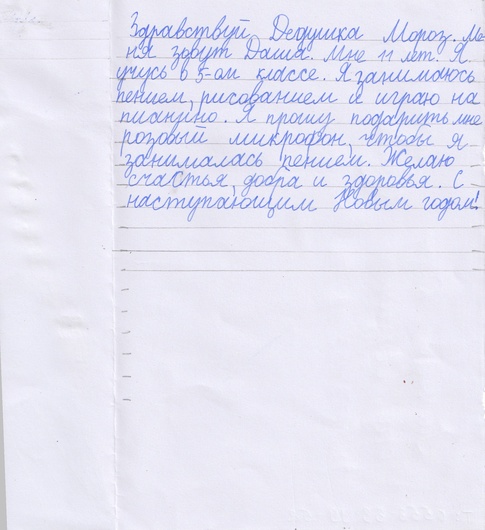 Здравствуй Дедушка Мороз. Ме-
ня зовут Даша. Мне 11 лет. Я
учусь в 5-ом классе. Я занимаюсь
пением, рисованием и играю на
пианино. Я прошу подарить мне
розовый микрофон, чтобы я
занималась пением. Желаю
счастья, добра и здоровья. С
наступающим Новым годом!